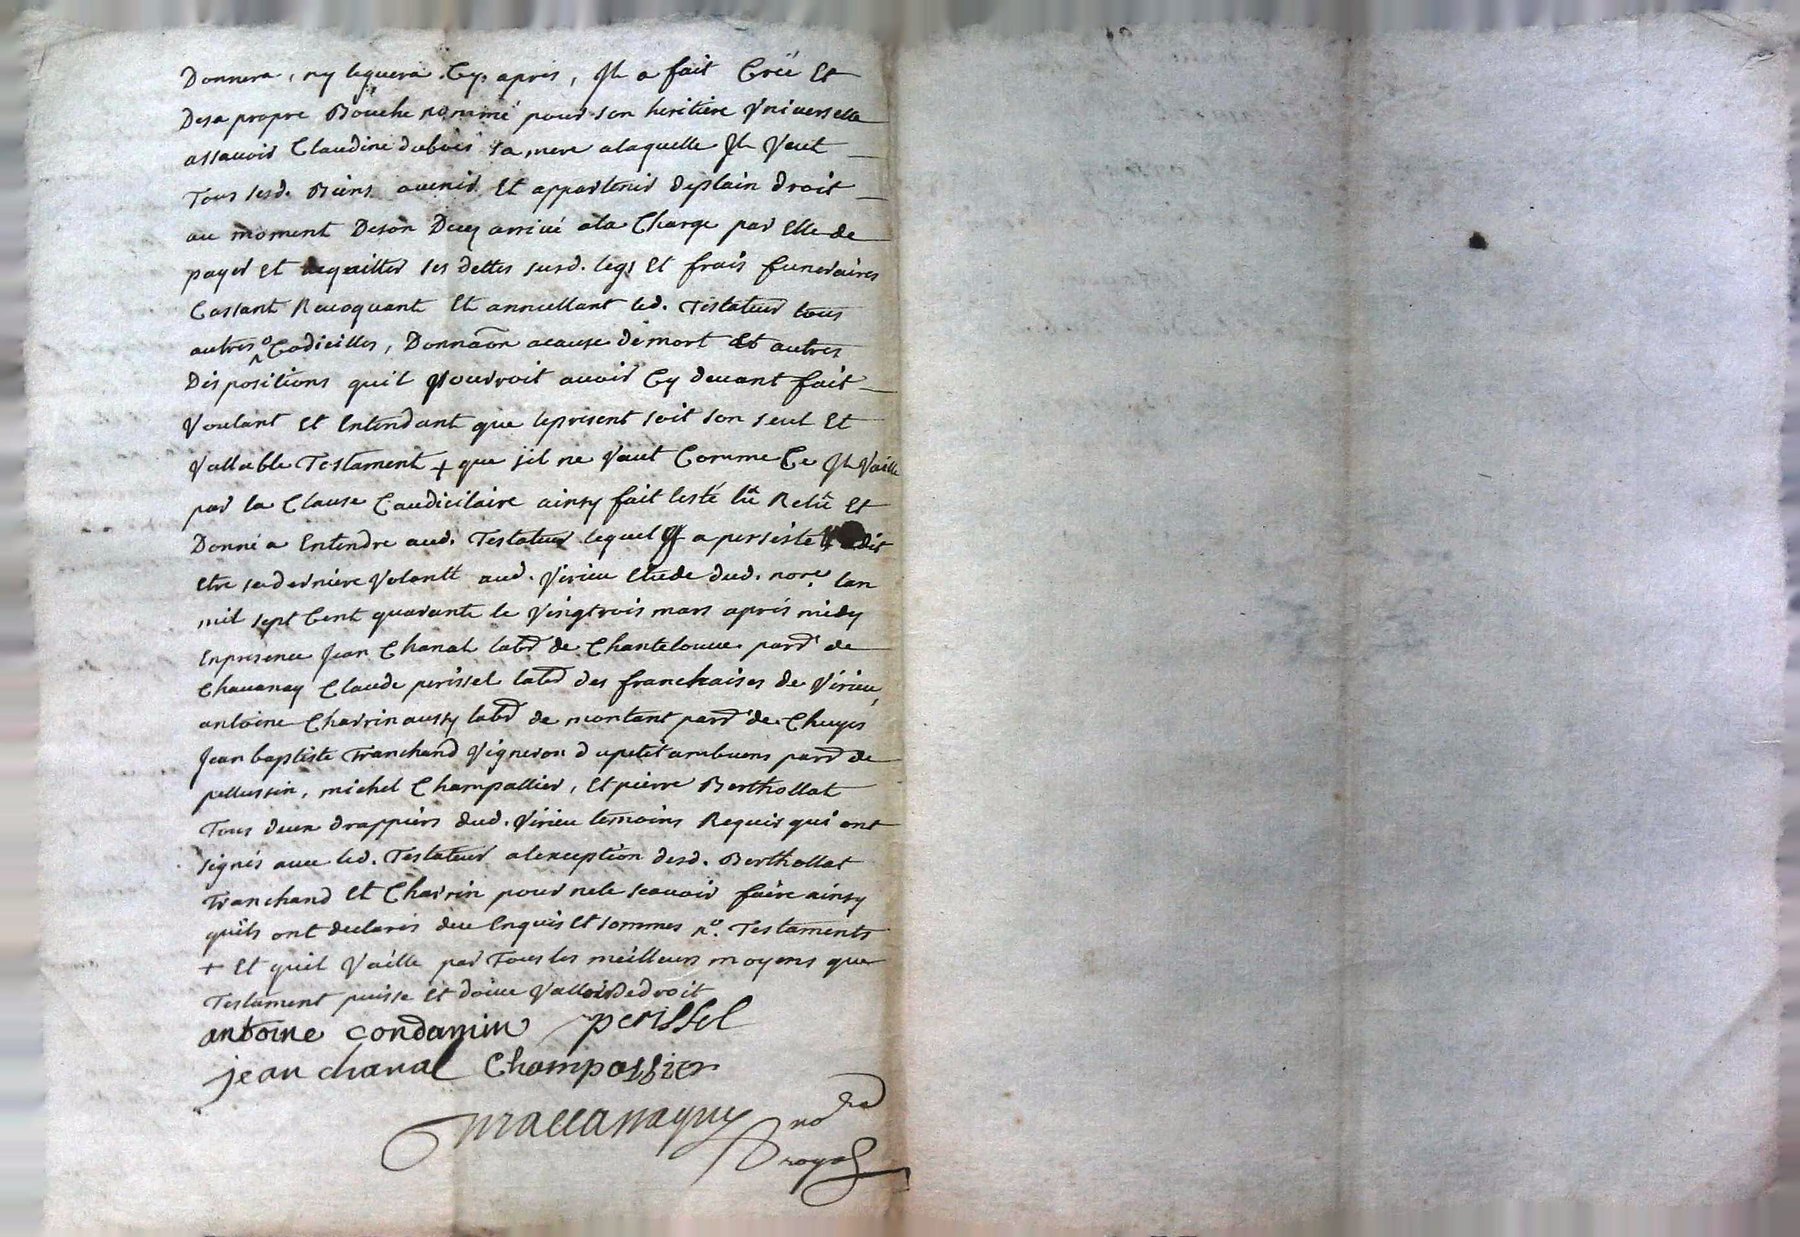 Donnera, ny leguera Cy. apres, Jl a fait Créé Et
Desa propre Bouche nommé pour son heritiere Vniverselle
assavoir Claudine dubois sa mere alaquelle Jl Veut
Tous sesd. Biens avenir Et appartenir deplain droit
au moment Deson Deces arrivé ala Charge par Elle de
payer Et acquitter ses dettes susd. legs Et frais funeraires
Cassant Revoquant Et annullant led. Testateur tous
autres o Codicilles, Donnaõn acause de mort et autres
Dispositions quil pourroit avoir Cy devant fait
Voulant Et Entendant que lepresent soit son seul Et
Vallable Testament + que sil ne Vaut Comme Ce Jl Vaille
par la Clause Caudicilaire ainsy fait testé lû Relû Et
Donné a Entendre aud. Testateur lequel y a persisté dit
Etre saderniere Volontt aud. Virieu Etude dud. nore. lan
mil sept Cent quarante le Vingtrois mars après midy
Enpresence Jean Chanal labr de Chanteloue parr de
Chavanay Claude perissel labr des franchises de Virieu,
antoine Charrin aussy labr de montant parr de Chuyes
Jean baptiste Tranchand Vigneron dupetit ambuens parr de
pellussin, michel Champallier, Et pierre Berthollat
Tous deux drappiers dud. Virieu temoins Requis qui ont
signés avec led. Testateur alexception desd. Berthollat
Tranchand Et Charrin pour nele scavoir faire ainsy
quils ont declarés deue Enquis Et sommes n°. Testaments
+ Et quil Vaille par Tous les meilleurs moyens que
Testament puisse Et doive Valloir dedroit
antoine condamin perissel
jean chanal Champallier
no re
royal